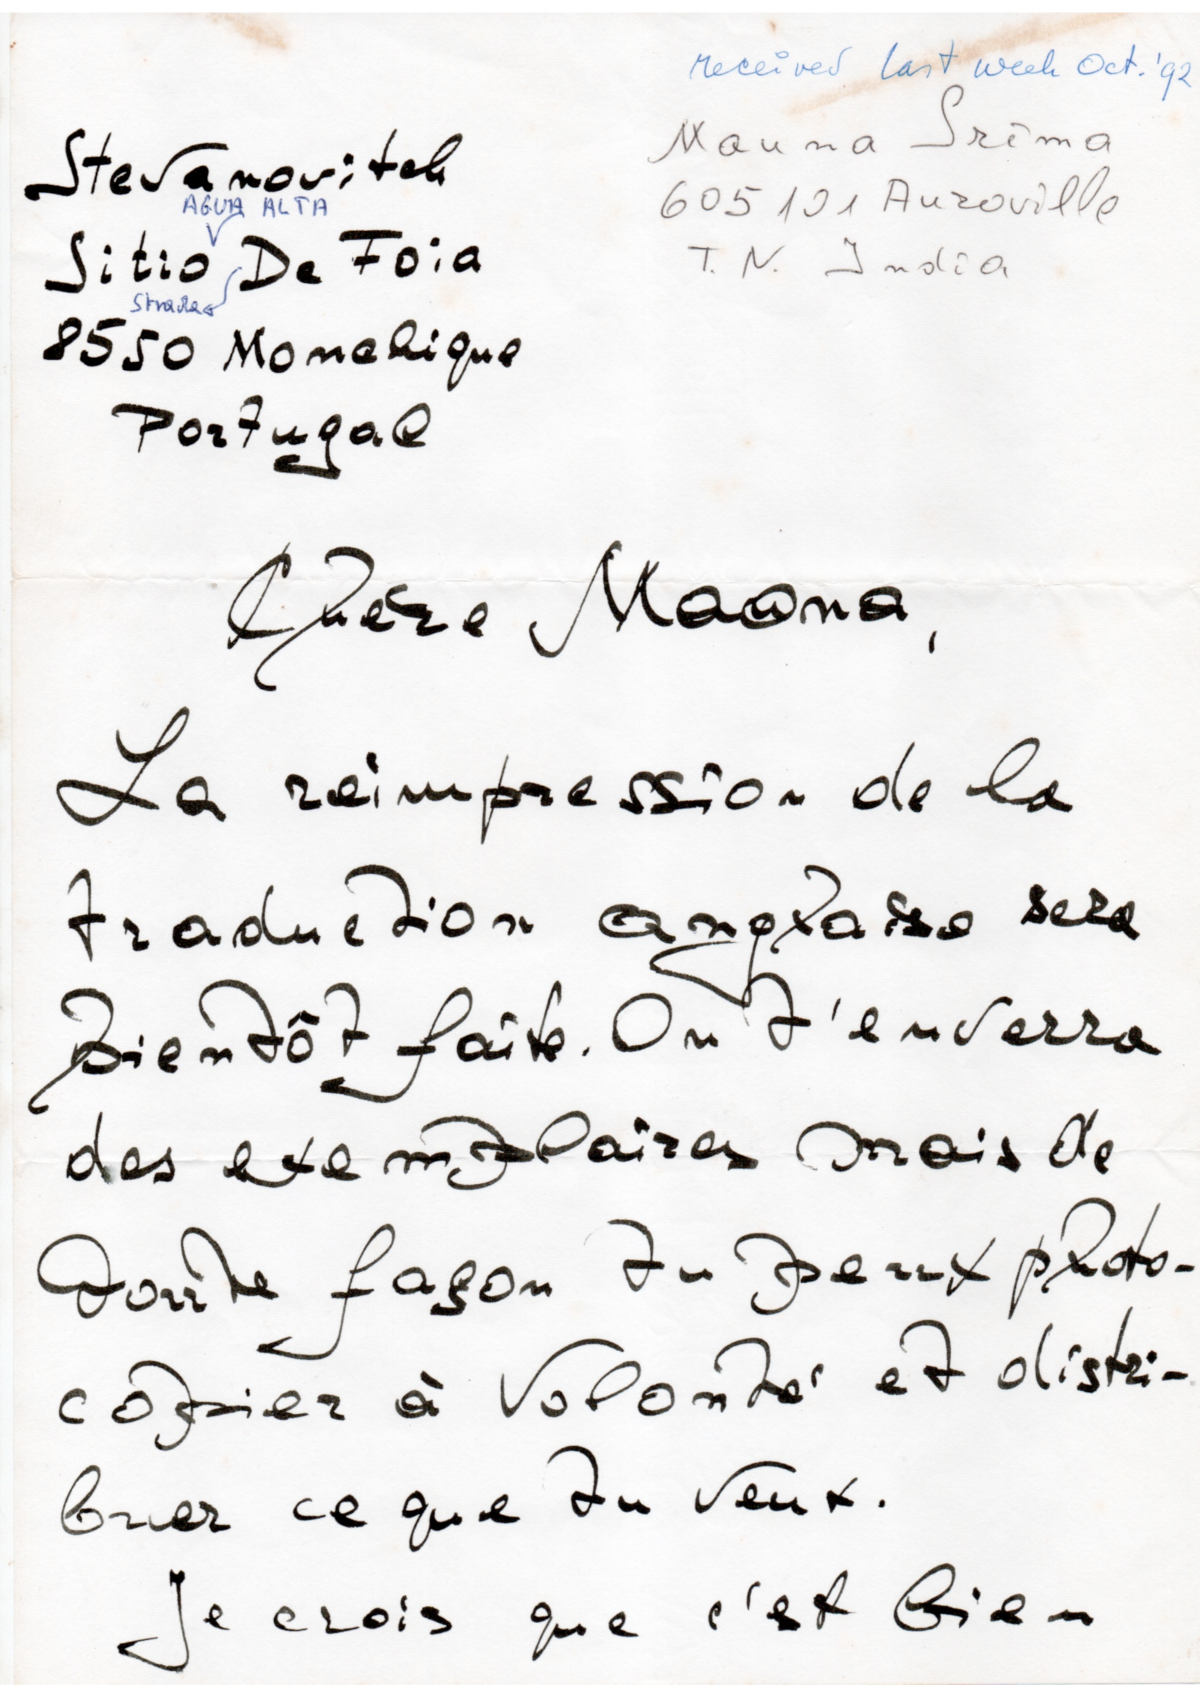 received last week Oct. '92
Mauna Srima
605 101 Auroville
T. N. India
Stevanovitch
AGUA ALTA
Sitio De Foia
Strada
8550 Monchique
Portugal
Chère Maona,
La réimpression de la
traduction anglaise sera
bientôt faite. On t'enverra
des exemplaires mais de
toute façon tu peux photo-
copier à volonté et distri-
buer ce que tu veux.
Je crois que c'est bien